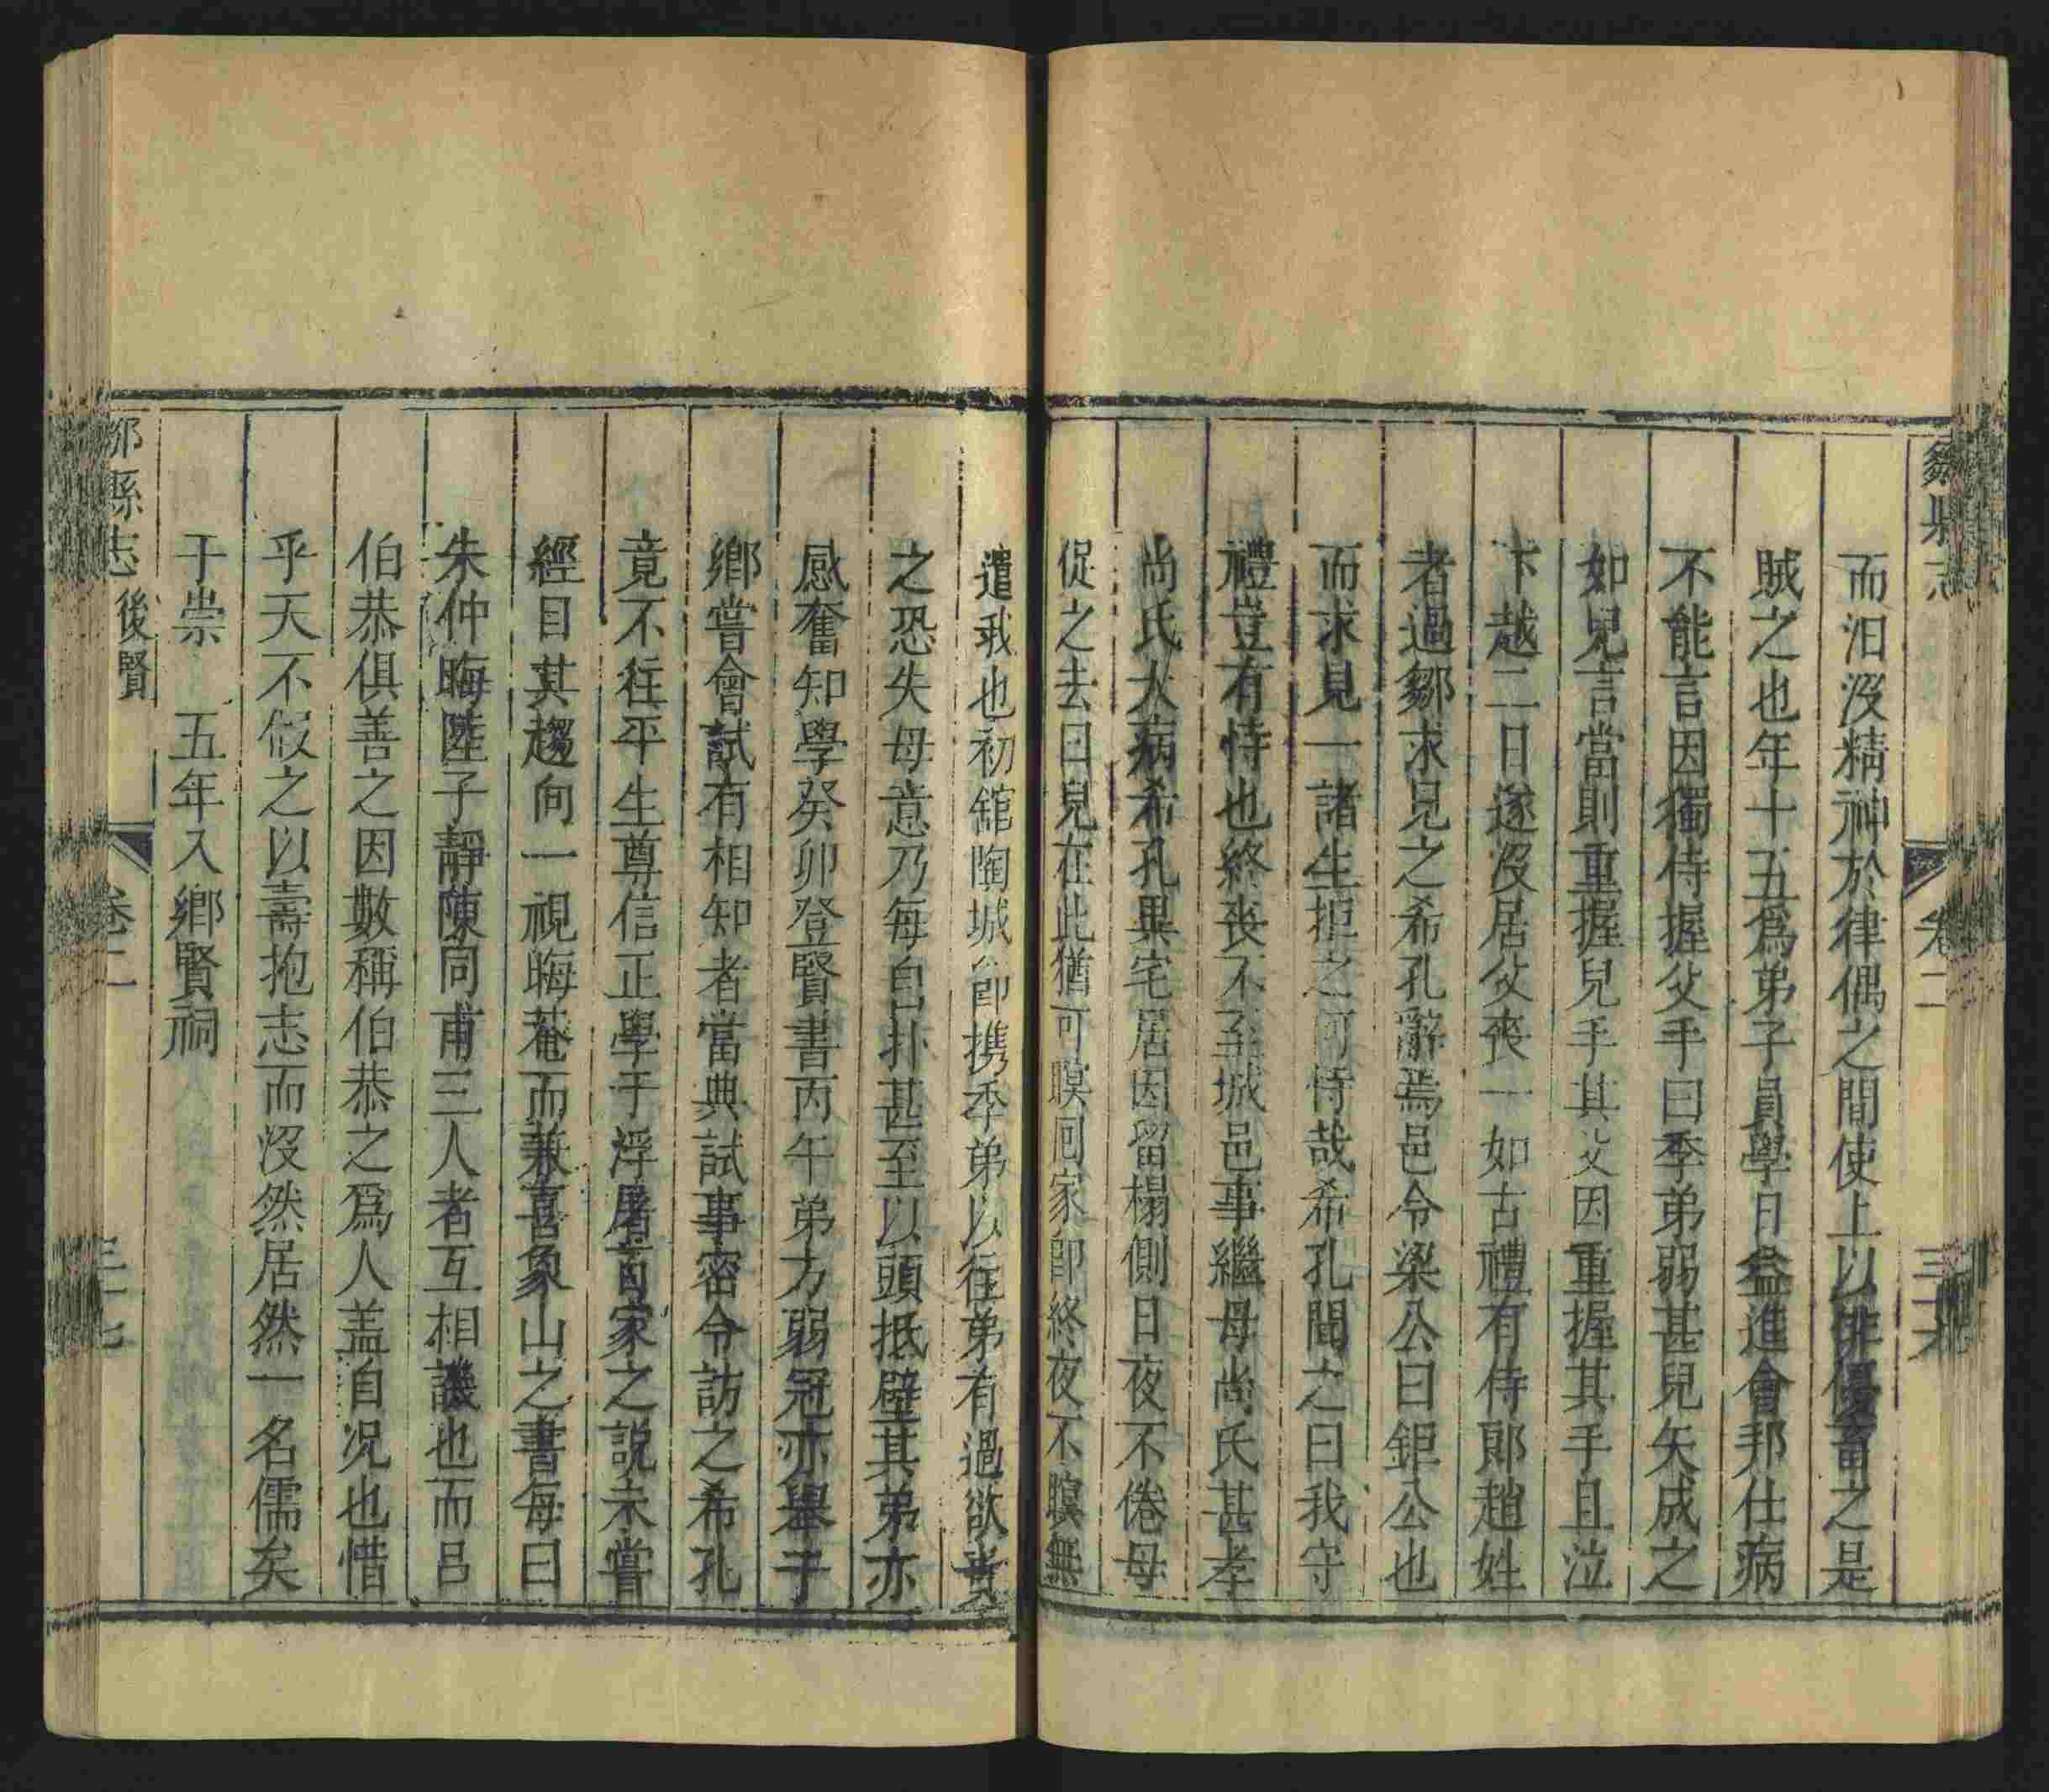 鄒縣志
卷二
而汨沒精神於律偶之間使上以俳優畜之是
賊之也年十五爲弟子員學日益進會邦仕病
不能言因獨侍握父手曰季弟弱甚兒矢成之
如兒言當則重握兒手其父因重握其手且泣
卞越二日遂沒居父喪一如古禮有侍郎趙姓
者過鄒求見之希孔辭焉邑令梁公曰鉅公也
而求見一諸生拒之何恃哉希孔聞之曰我守
禮豈有恃也終喪不至城邑事繼母尚氏甚孝
尚氏大病希孔異宅居因留榻側日夜不倦母
促之去曰兒在此猶可瞑回家卽終夜不瞑無
遣我也初舘陶城卽携季弟以往弟有過欲責
之恐失母意乃每自扑甚至以頭抵壁其弟亦
感奮知學癸卯登賢書丙午弟方弱冠亦舉于
鄉嘗會試有相知者當典試事密令訪之希孔
竟不往平生尊信正學于浮屠青家之說未嘗
經目其趨向一視晦菴而兼喜象山之書每曰
朱仲晦陸子靜陳同甫三人者互相譏也而呂
伯恭俱善之因數稱伯恭之爲人盖自况也惜
乎天不假之以壽抱志而沒然居然一名儒矣
于崇 五年入鄉賢祠
鄒縣志 後賢
卷二
三十七